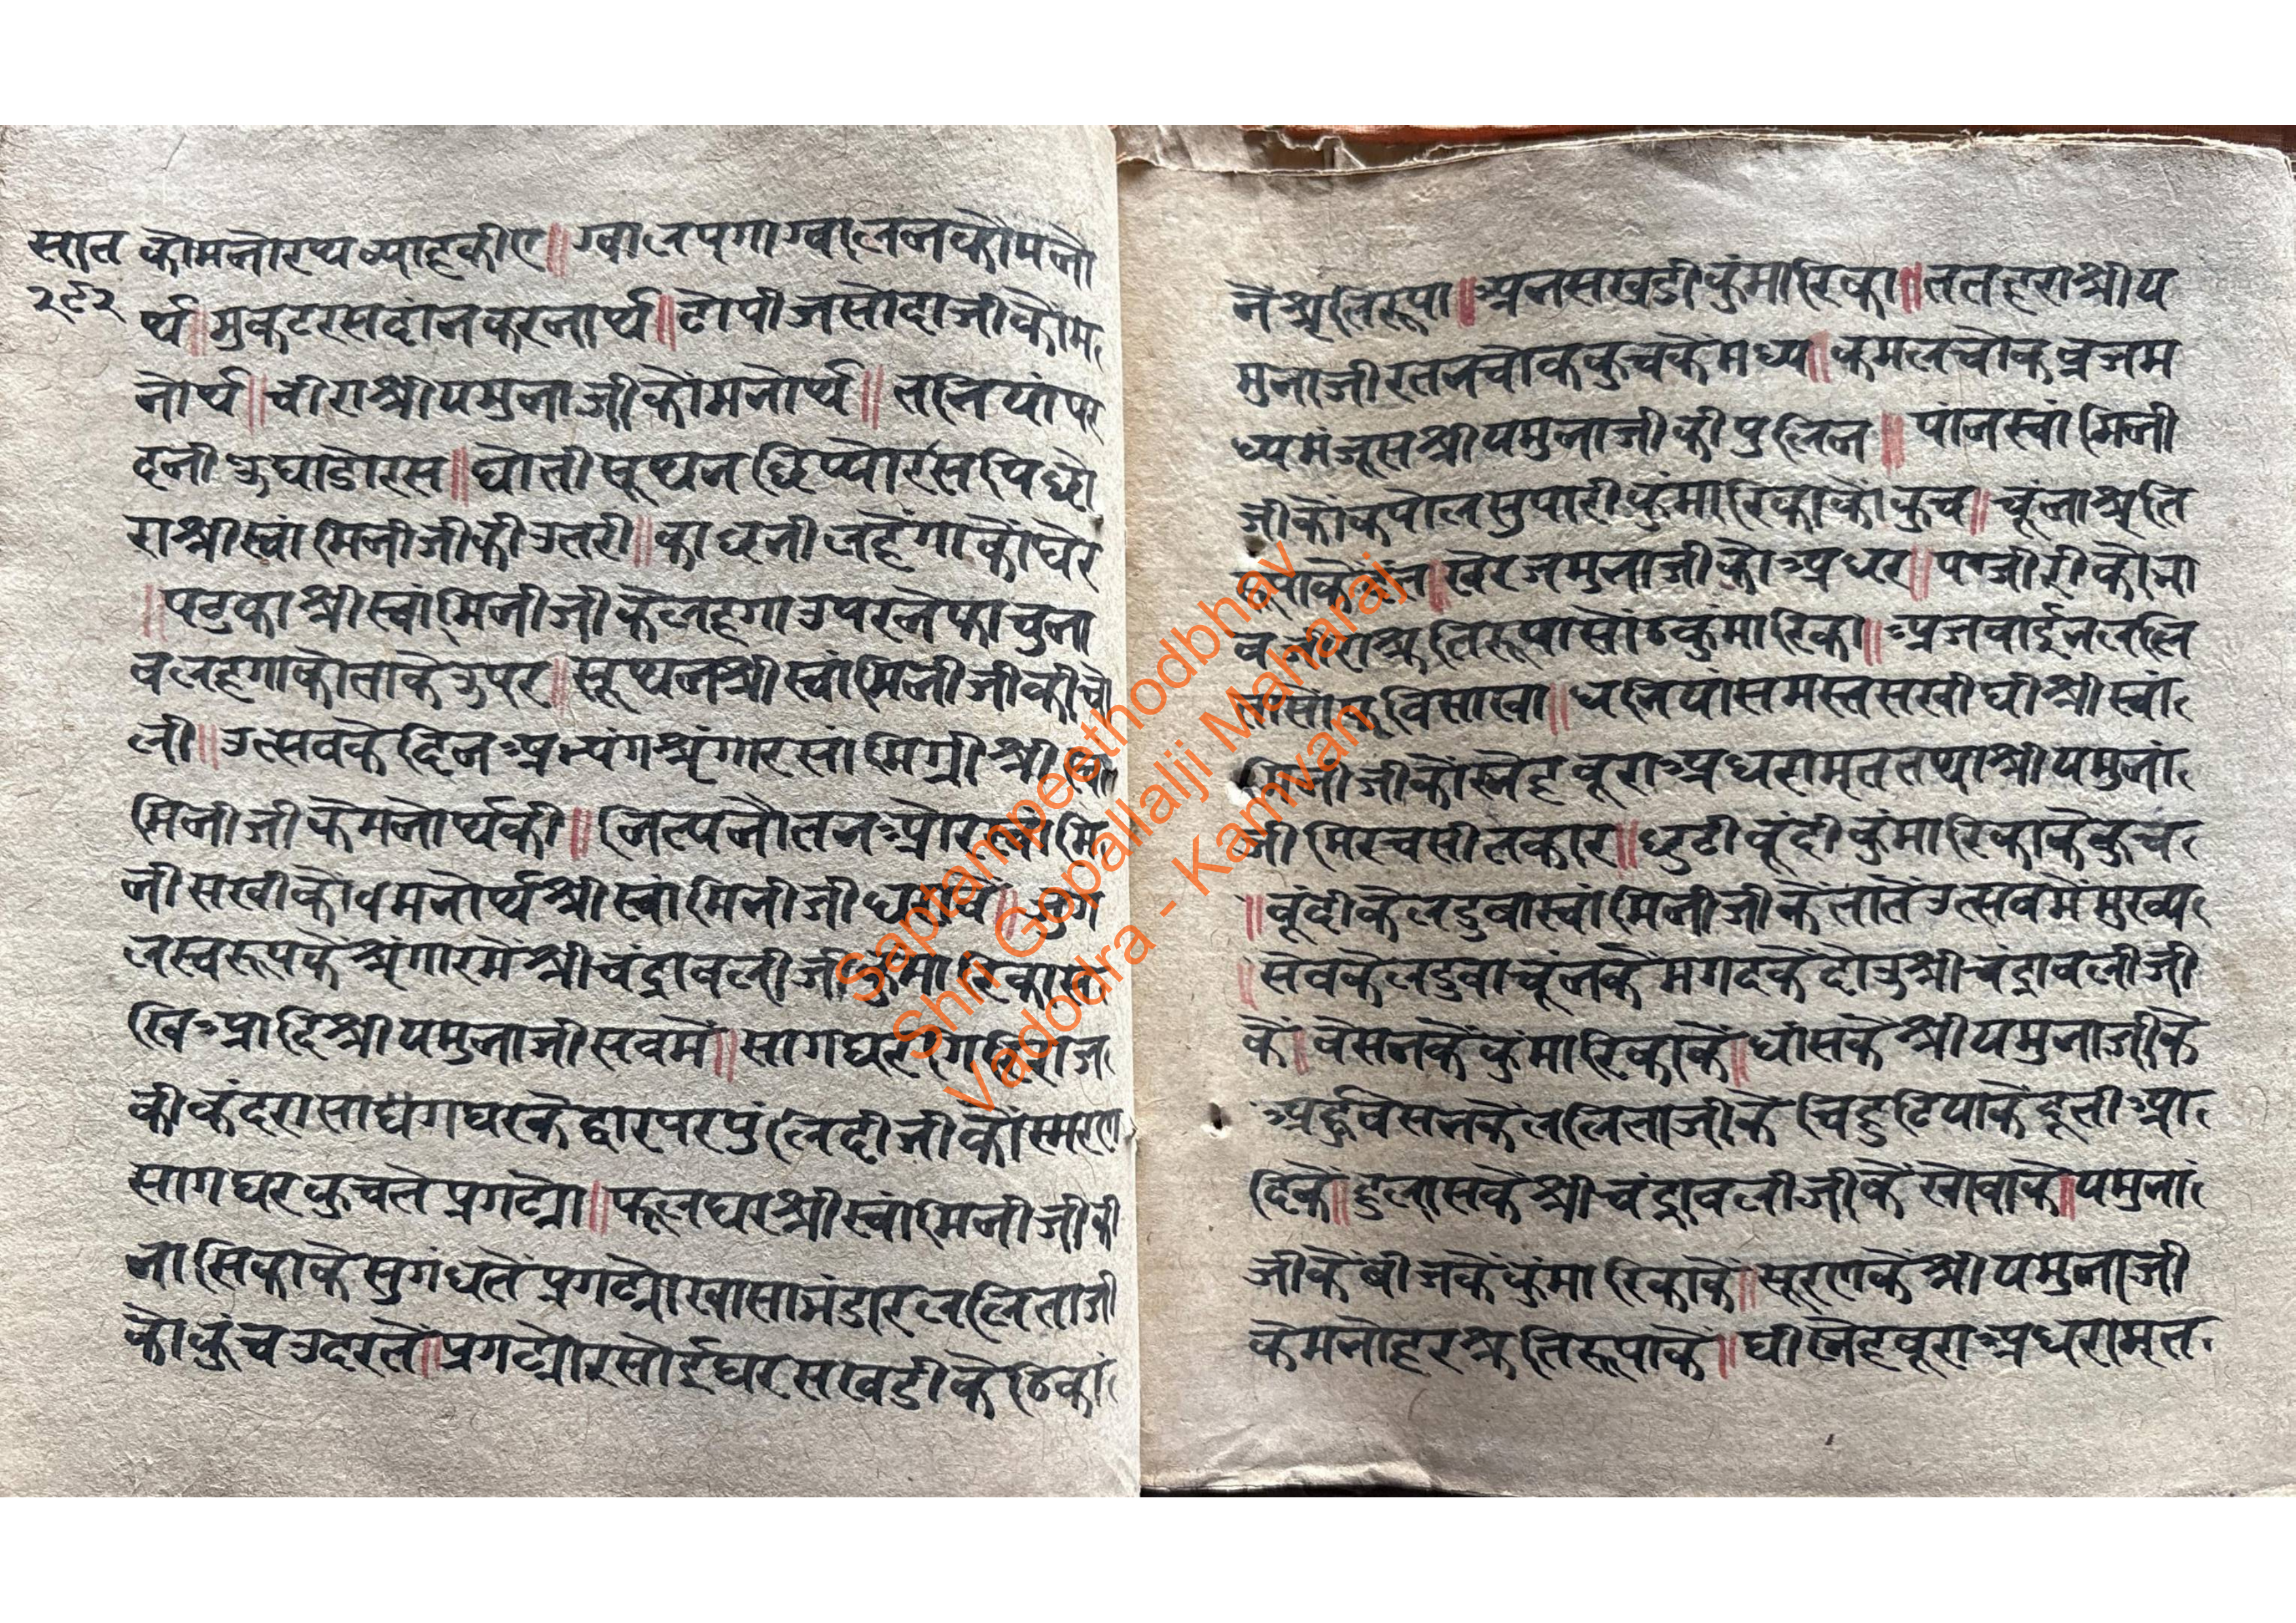 सात
२९२
कोमनोरथ ब्याहकीए॥ ग्वालपगाग्वालनकोंमनो
र्थ॥मुकटरसदांनकरनार्थ॥टोपीजसोदाजीकोंम
नोर्थ॥चीराश्रीयमुनाजीकोंमनोर्थ॥ तनियांपर
दनी उघाडोरस॥धोती सूथन छिप्योरस पिछो
राश्रीस्वांमिनीजीकी उतरी॥काछनी लहेंगाकोंघेर
॥पटुकाश्रीस्वांमिनीजीकेलहगाउपरनेफाचुना
वलहगाकोताकेउपर॥सूथनश्रीस्वांमिनीजीकीचो
ली॥उत्सवकेदिनअभ्यंगश्रृंगारसांमिग्री श्री
मिनीजीकेमनोर्थकी॥ नित्यनौतनओर
नीसखीकोंमनोर्थश्रीस्वांमिनीजी
लस्वरूपकेंश्रृंगारमेंश्रीचंद्रावलीजी
खिआदिश्रीयमुनाजीसवमें॥सागघर
कीकंदरासाघंगघरकेद्वारपरपुंलिदीजीकोंस्मरण
सागघरकुचतेप्रगट्यो॥फूलघरश्रीस्वांमिनीजीकी
नासिकाकेसुगंधतेंप्रगट्योखासाभंडारललिताजी
कोकुंचउदरतें॥प्रगट्योरसोईघरसखडीकेठिकां
नेंश्रृतिरूपा॥अनसखडीकुंमारिका॥ततहराश्रीय
मुनाजीरतनचोककुचकेमध्य॥कमलचोकव्रजम
ध्यमंजूसश्रीयमुनाजीकीपुलिन॥ पांनस्वांमिनी
जीकोंकपोलसुपारीकुंमारिकाकोंकुच॥चूंनाश्रृति
खेरजमुनाजीकोअधर॥पंजीरीकोभा
वजीराश्रृतिरूपासोंठकुमारिका॥अजवाईनललि
विसाखा॥धनियांसमस्तसखीघीश्रीस्वां
मिनीजीकोंस्नेहबूराअधरामृततथाश्रीयमुनां
जीमिरचसीतकार॥छुटीबूंदीकुंमारिकाकेकुच
॥बूंदीकेलडुवास्वांमिनीजीकेंतातेंउत्सवमेंमुख्य
॥सेवकेलडुवाचूंनकेंमगदकेंदोउश्रीचंद्रावलीजी
कें॥बेसनकेंकुंमारिकाकें॥घांसकेंश्रीयमुनाजीके
ललिताजीकेंचिडुटियाकेंदूतीआ
दिकें॥हुलासकेंश्रीचंद्रावलीजीकेंखोवाकें॥यमुनां
जीकेंबीजकेंकुंमारिकाकें॥सूरणकेंश्रीयमुनाजी
केमनोहरश्रृतिरूपाकें॥घीनेहबूराअधरामृत